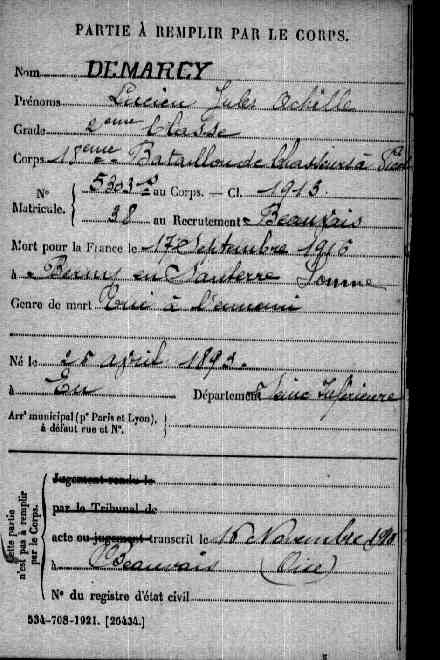 PARTIE À REMPLIR PAR LE CORPS.
Nom DEMARCY
Prénoms Lucien Jules Achille
Grade 2eme Classe
Corps 15eme Bataillon de Chasseurs à Pied
N° Matricule. { 5303 au Corps. — Cl. 1913.
38 au Recrutement Beauvais
Mort pour la France le 17 Septembre 1916
à Berny en Santerre Somme
Genre de mort Tué à l'ennemi
Né le avril 1893.
à Eu Département Seine Inférieure
Arrt municipal (pr Paris et Lyon), à défaut rue et N°. }
Cette partie n'est pas à remplir par le Corps. {
Jugement rendu le
par le Tribunal de
acte ou jugement transcrit le 16 Novembre
à Beauvais (Oise)
N° du registre d'état civil
534-708-1921. [26434.]